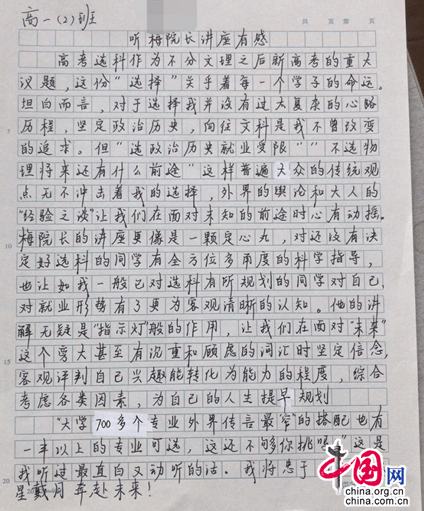 高一(2)班
共 页 第 页
听梅院长讲座有感
高考选科作为不分文理之后新高考的重大
议题，这份“选择”关乎着每一个学子的命运。
坦白而言，对于选择我并没有过大复杂的心路
历程，坚定政治历史，向往文科是我不曾改变
的追求。但“选政治历史就业受限”“不选物
理将来还有什么前途”这样普遍大众的传统观
点无不冲击着我的选择，外界的舆论和大人的
“经验之谈”让我们在面对未知的前途时心有动摇。
梅院长的讲座更像是一颗定心丸，对还没有决
定好选科的同学有全方位多角度的科学指导，
也让如我一般已对选科有所规划的同学对自己、
对就业形势有了更为客观清晰的认知。他的讲
解无疑是“指示灯”般的作用，让我们在面对“未来”
这个宽大甚至有沉重和顾虑的词汇时坚定信念，
客观评判自己兴趣能转化为能力的程度，综合
考虑各类因素，为自己的人生提早规划
“大学700多个专业外界传言最窄的搭配也有
一半以上的专业可选，这还不够你挑吗”这是
我听过最直白又动听的话。我将忠于
星戴月奔赴未来！
5
10
15
20
中国网
china.org.cn